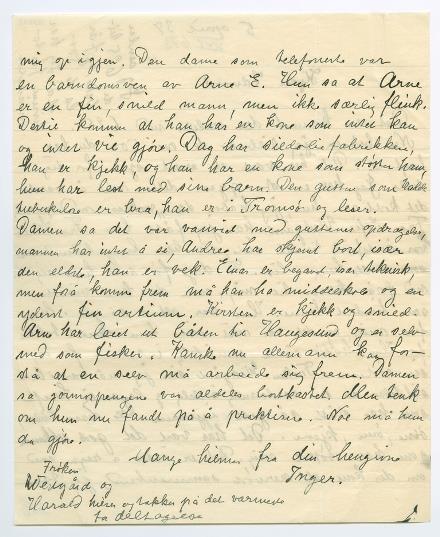 mig op igjen. Den dame som telefonerte var
en barndomsven av Arne E. Hun sa at Arne
er en fin, snild mann, men ikke særlig flink.
Dertil kommer at han har en kone som intet kan
og intet vil gjøre. Dag har sildoliefabrikken,
han er kjekk, og han har en kone som støtter ham,
hun har lest med sine barn. Den gutten som hadde
tuberkulose er bra, han er i Tromsø og leser.
Damen sa det var vanvid med guttenes opdragelse,
mannen har intet å si, Andrea har skjemt bort, især
den eldste, han er vek. Einar er begavet, især teknisk,
men for å komme frem må han ha middelskole og en
yderst fin artium. Kirsten er kjekk og snild.
Arne har leiet ut båten til Haugesund og er selv
med som fisker. Kanske nu allemann kan for-
stå at en selv må arbeide sig frem. Damen
sa at var aldeles bortkastet. Men tenk
om hun nu fandt på å praktisere. Noe må hun
da gjøre.
Mange hilsner fra din hengivne
Inger.
Frøken
Westgård og
Harald hilser og takker på det varmeste
for deltagelse